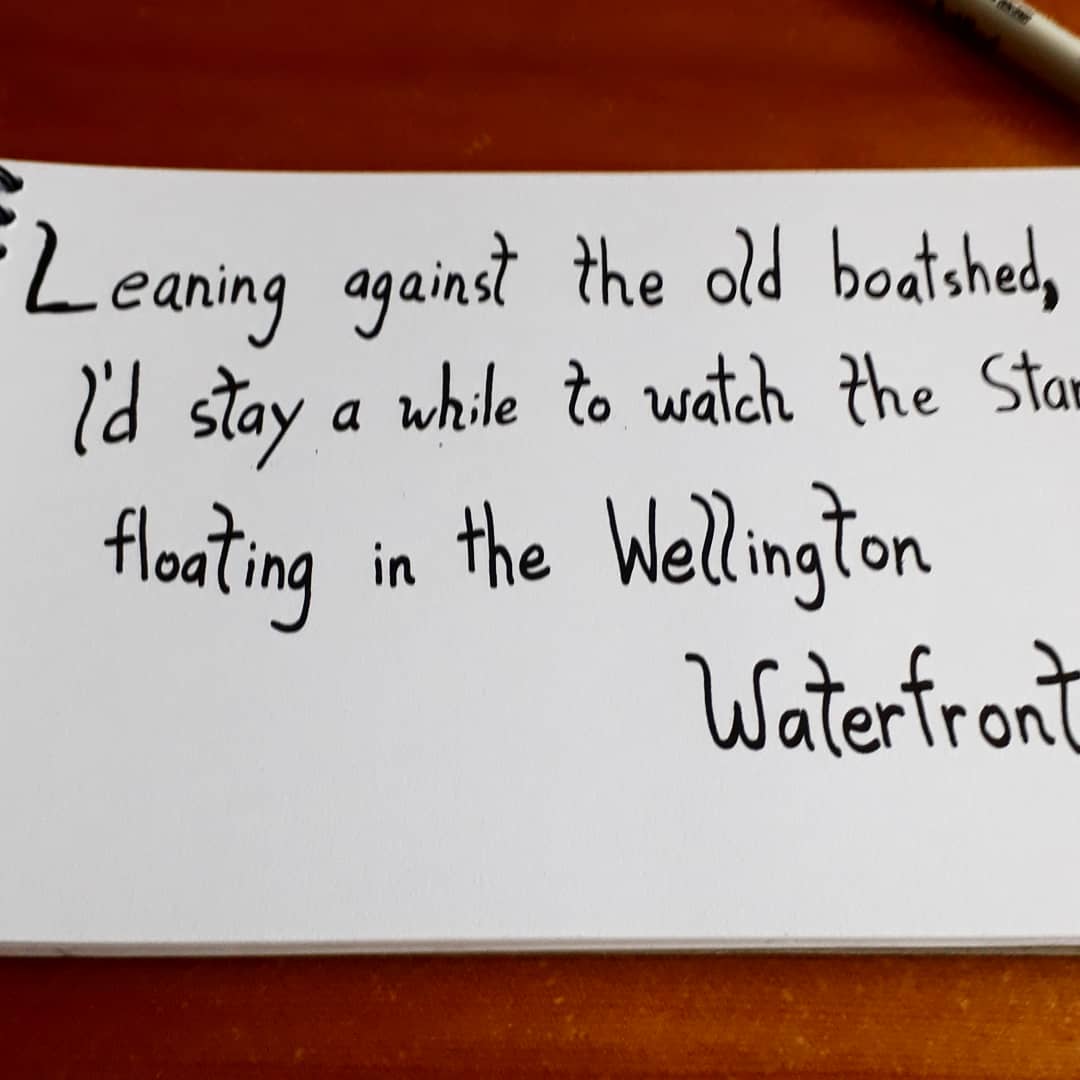 Leaning against the old boatshed,
I'd stay a while to watch the
floating in the Wellington
Waterfront